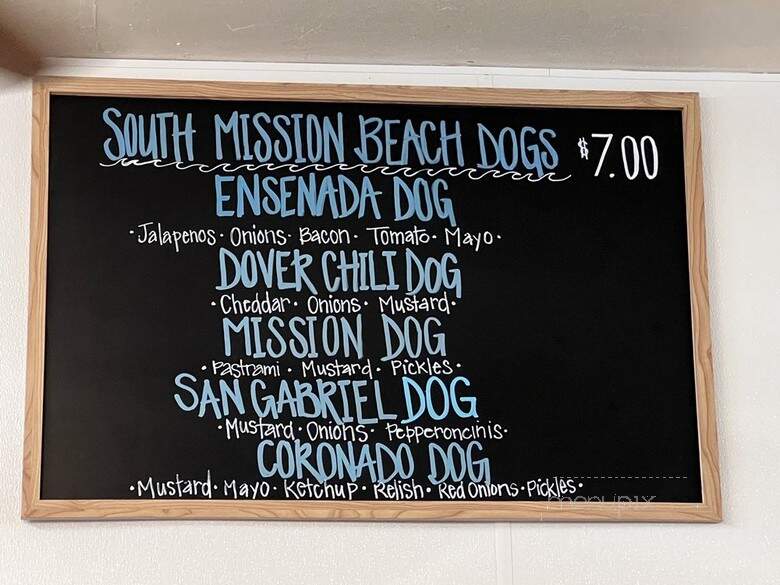 SOUTH MISSION BEACH DOGS $7.00
ENSENADA DOG
·Jalapenos· Onions· Bacon· Tomato· Mayo·
DOVER CHILI DOG
·Cheddar· Onions· Mustard·
MISSION DOG
·Pastrami· Mustard· Pickles·
SAN GABRIEL DOG
·Mustard· Onions· Pepperoncinis·
CORONADO DOG
·Mustard· Mayo· Ketchup· Relish· Red Onions· Pickles·
menupix